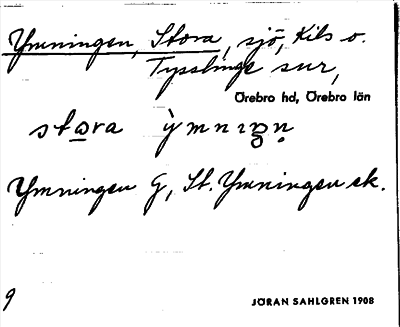 Ymningen, Stora, sjö, Kils o.
Tysslinge snr,
Örebro hd, Örebro län
stora ỳmnıŋn̥
Ymningen G, St. Ymningen ek.
9
JÖRAN SAHLGREN 1908